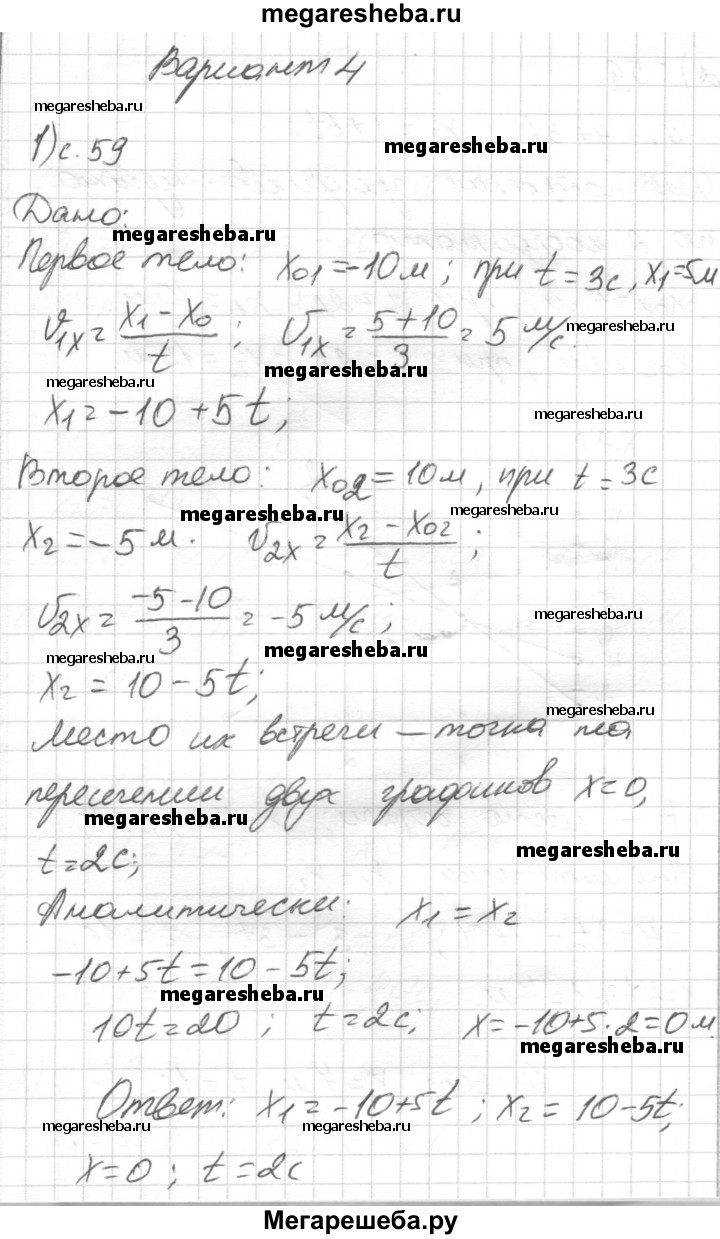 megaresheba.ru
Вариант 4
megaresheba.ru
1) с. 59
megaresheba.ru
Дано:
megaresheba.ru
Первое тело: x01 = -10 м; при t = 3с, x1 = 5м
v1x = (x1 - x0)/t; v1x = (5+10)/3 = 5 м/с.
megaresheba.ru
megaresheba.ru
megaresheba.ru
x1 = -10 + 5t;
megaresheba.ru
Второе тело: x02 = 10 м, при t = 3с
megaresheba.ru
megaresheba.ru
x2 = -5 м. v2x = (x2 - x02)/t;
v2x = (-5-10)/3 = -5 м/с;
megaresheba.ru
megaresheba.ru
megaresheba.ru
x2 = 10 - 5t;
megaresheba.ru
Место их встречи – точка на
пересечении двух графиков x=0,
megaresheba.ru
megaresheba.ru
t=2с;
Аналитически: x1 = x2
-10+5t=10-5t;
megaresheba.ru
10t=20; t=2с; x=-10+5·2=0м
megaresheba.ru
Ответ: x1=-10+5t; x2=10-5t;
megaresheba.ru
megaresheba.ru
x=0; t=2с
Мегарешеба.ру